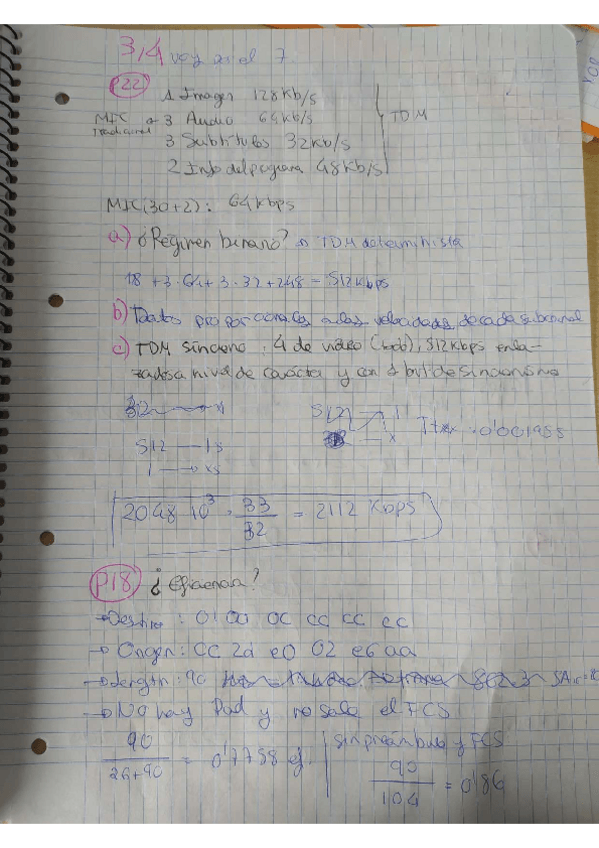 3,4 voy en el 7.
P22 1 Imagen 128Kb/s
MIC tradicional 3 Audio 64Kb/s TDM
3 Subtítulos 32Kb/s
2 Info del programa 48Kb/s
MIC(30+2): 64Kbps
a) ¿Régimen binario? TDM determinista
128 + 3·64 + 3·32 + 2·48 = 512Kbps
b) Todatos proporcionales a las velocidades de cada subcanal
c) TDM síncrono: 4 de video (todo), 512Kbps entla-
zados a nivel de carácter y con 1 bit de sincronismo
512 — 1s
1 — x s
512 — 1
1 — x
Ttx = 0'001955
2048·10³ · 33/32 = 2112 Kbps
P18 ¿Eficiencia?
→ Destino: 01 00 0C CC CC CC
→ Origen: CC 2d e0 02 e6 aa
→ Length: 90 802.3
→ No hay Pad y no sale el FCS
90/26+90 = 0'7758 sin preámbulo y FCS
90/104 = 0'86